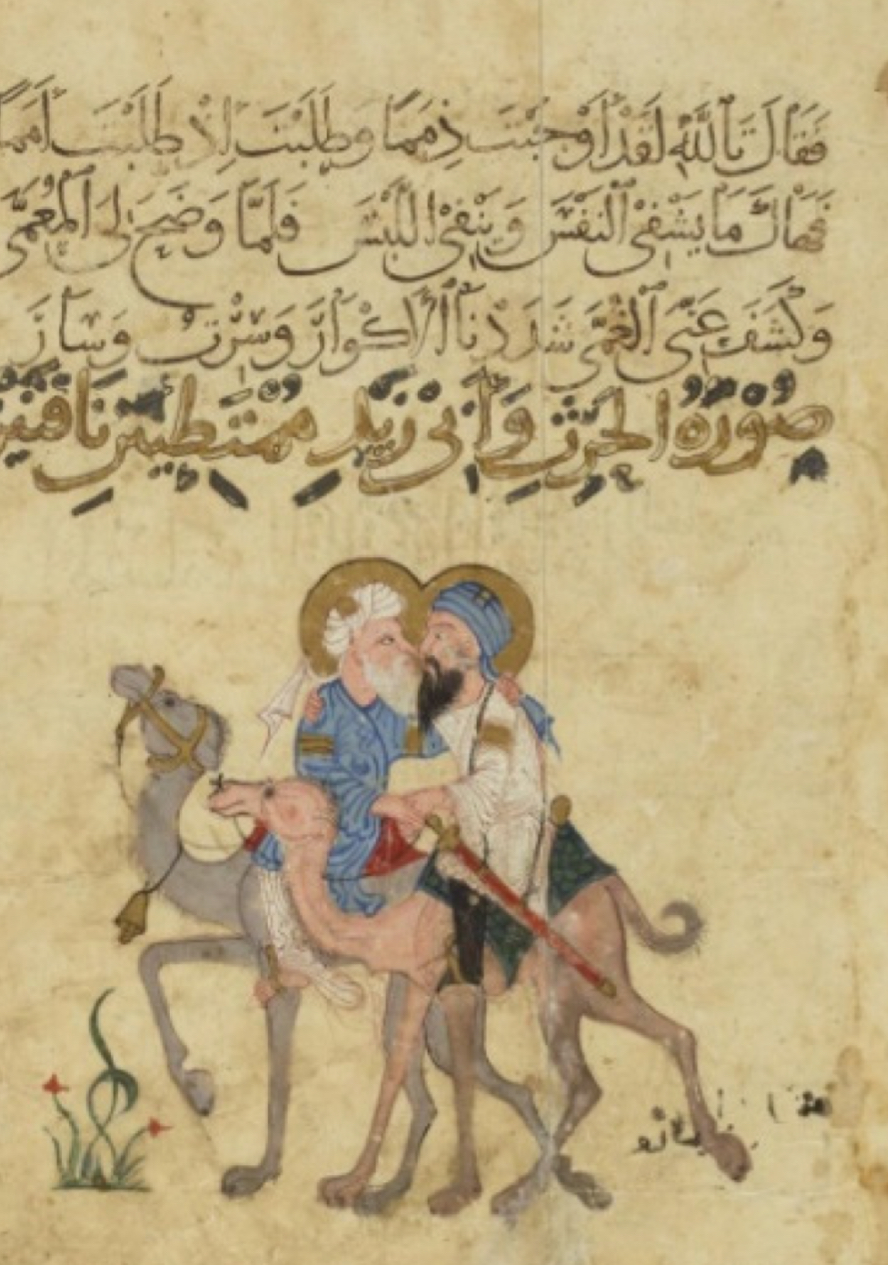 فَقَالَ تَاللّٰهِ لَقَدْ أَوْجَبْتَ ذِمَمًا وَطَلَبْتَ إِذْ طَلَبْتَ أَمَمًا
فَهَاكَ مَا يَشْفِي النَّفْسَ وَيَنْفِي اللَّبْسَ فَلَمَّا وَضَحَ لِيَ الْمُعَمَّى
وَكَشَفَ عَنِّي الْغُمَّى شَدَدْنَا الْأَكْوَارَ وَسِرْتُ وَسَارَ
صُوْرَةُ الْحَرِثِ وَأَبِي زَيْدٍ مُمْتَطِيَيْنِ نَاقَتَيْنِ